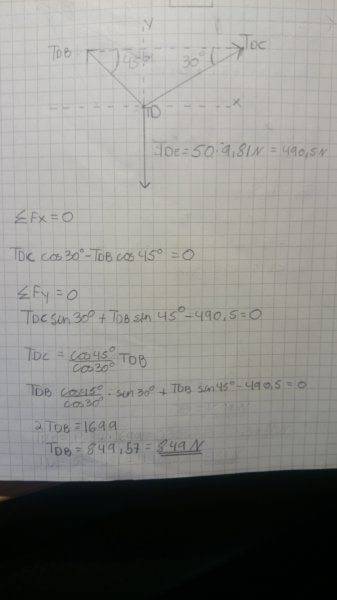 y
TDB
45°
30°
TDC
x
TD
TDE = 50 · 9,81N = 490,5N
ΣFx = 0
TDC cos30° - TDB cos 45° = 0
ΣFy = 0
TDC sin 30° + TDB sin 45° - 490,5 = 0
TDC = cos45° / cos30° TDB
TDB cos45° / cos30° · sin30° + TDB sin45° - 490,5 = 0
2 TDB = 1699
TDB = 849,57 = 849 N